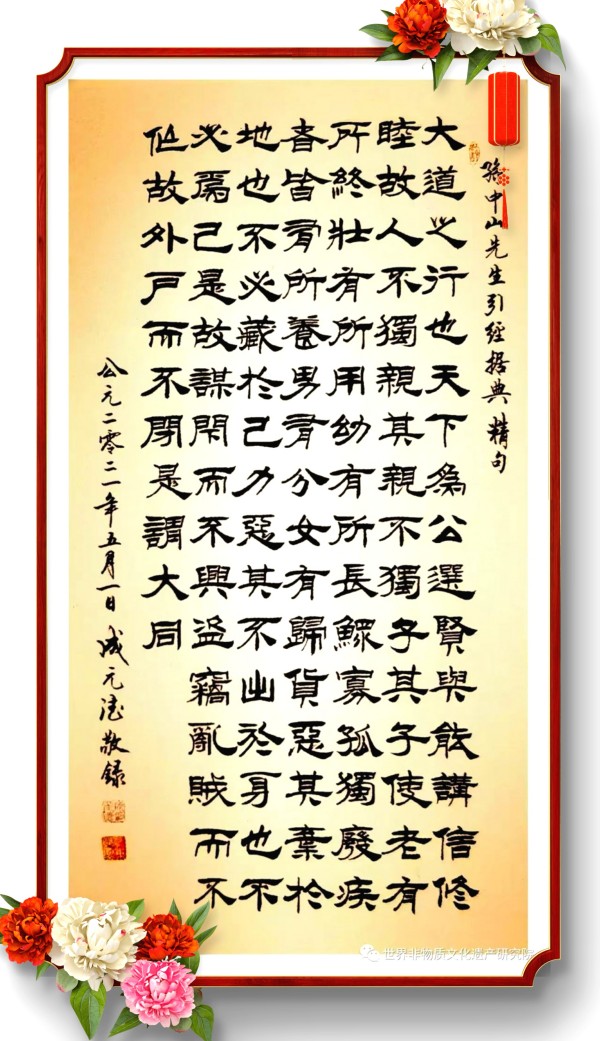 孫中山先生引經据典 精句
大道之行也天下為公選賢與能講信修
睦故人不獨親其親不獨子其子使老有
所終壯有所用幼有所長鰥寡孤獨廢疾
者皆有所養男有分女有歸貨惡其棄於
地也不必藏於己力惡其不出於身也不
必為己是故謀閉而不興盜竊亂賊而不
作故外戶而不閉是謂大同
公元二零二一年五月一日 成元敬録
世界非物质文化遗产研究院